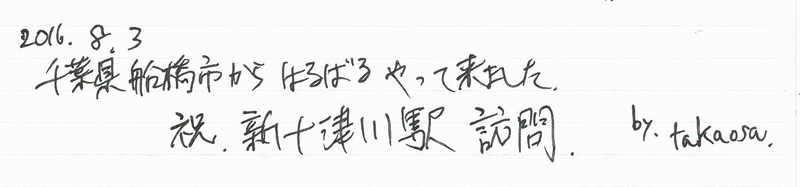 2016. 8. 3
千葉県船橋市から はるばる やって来ました.
祝. 新十津川駅 訪問. by. takaosa.